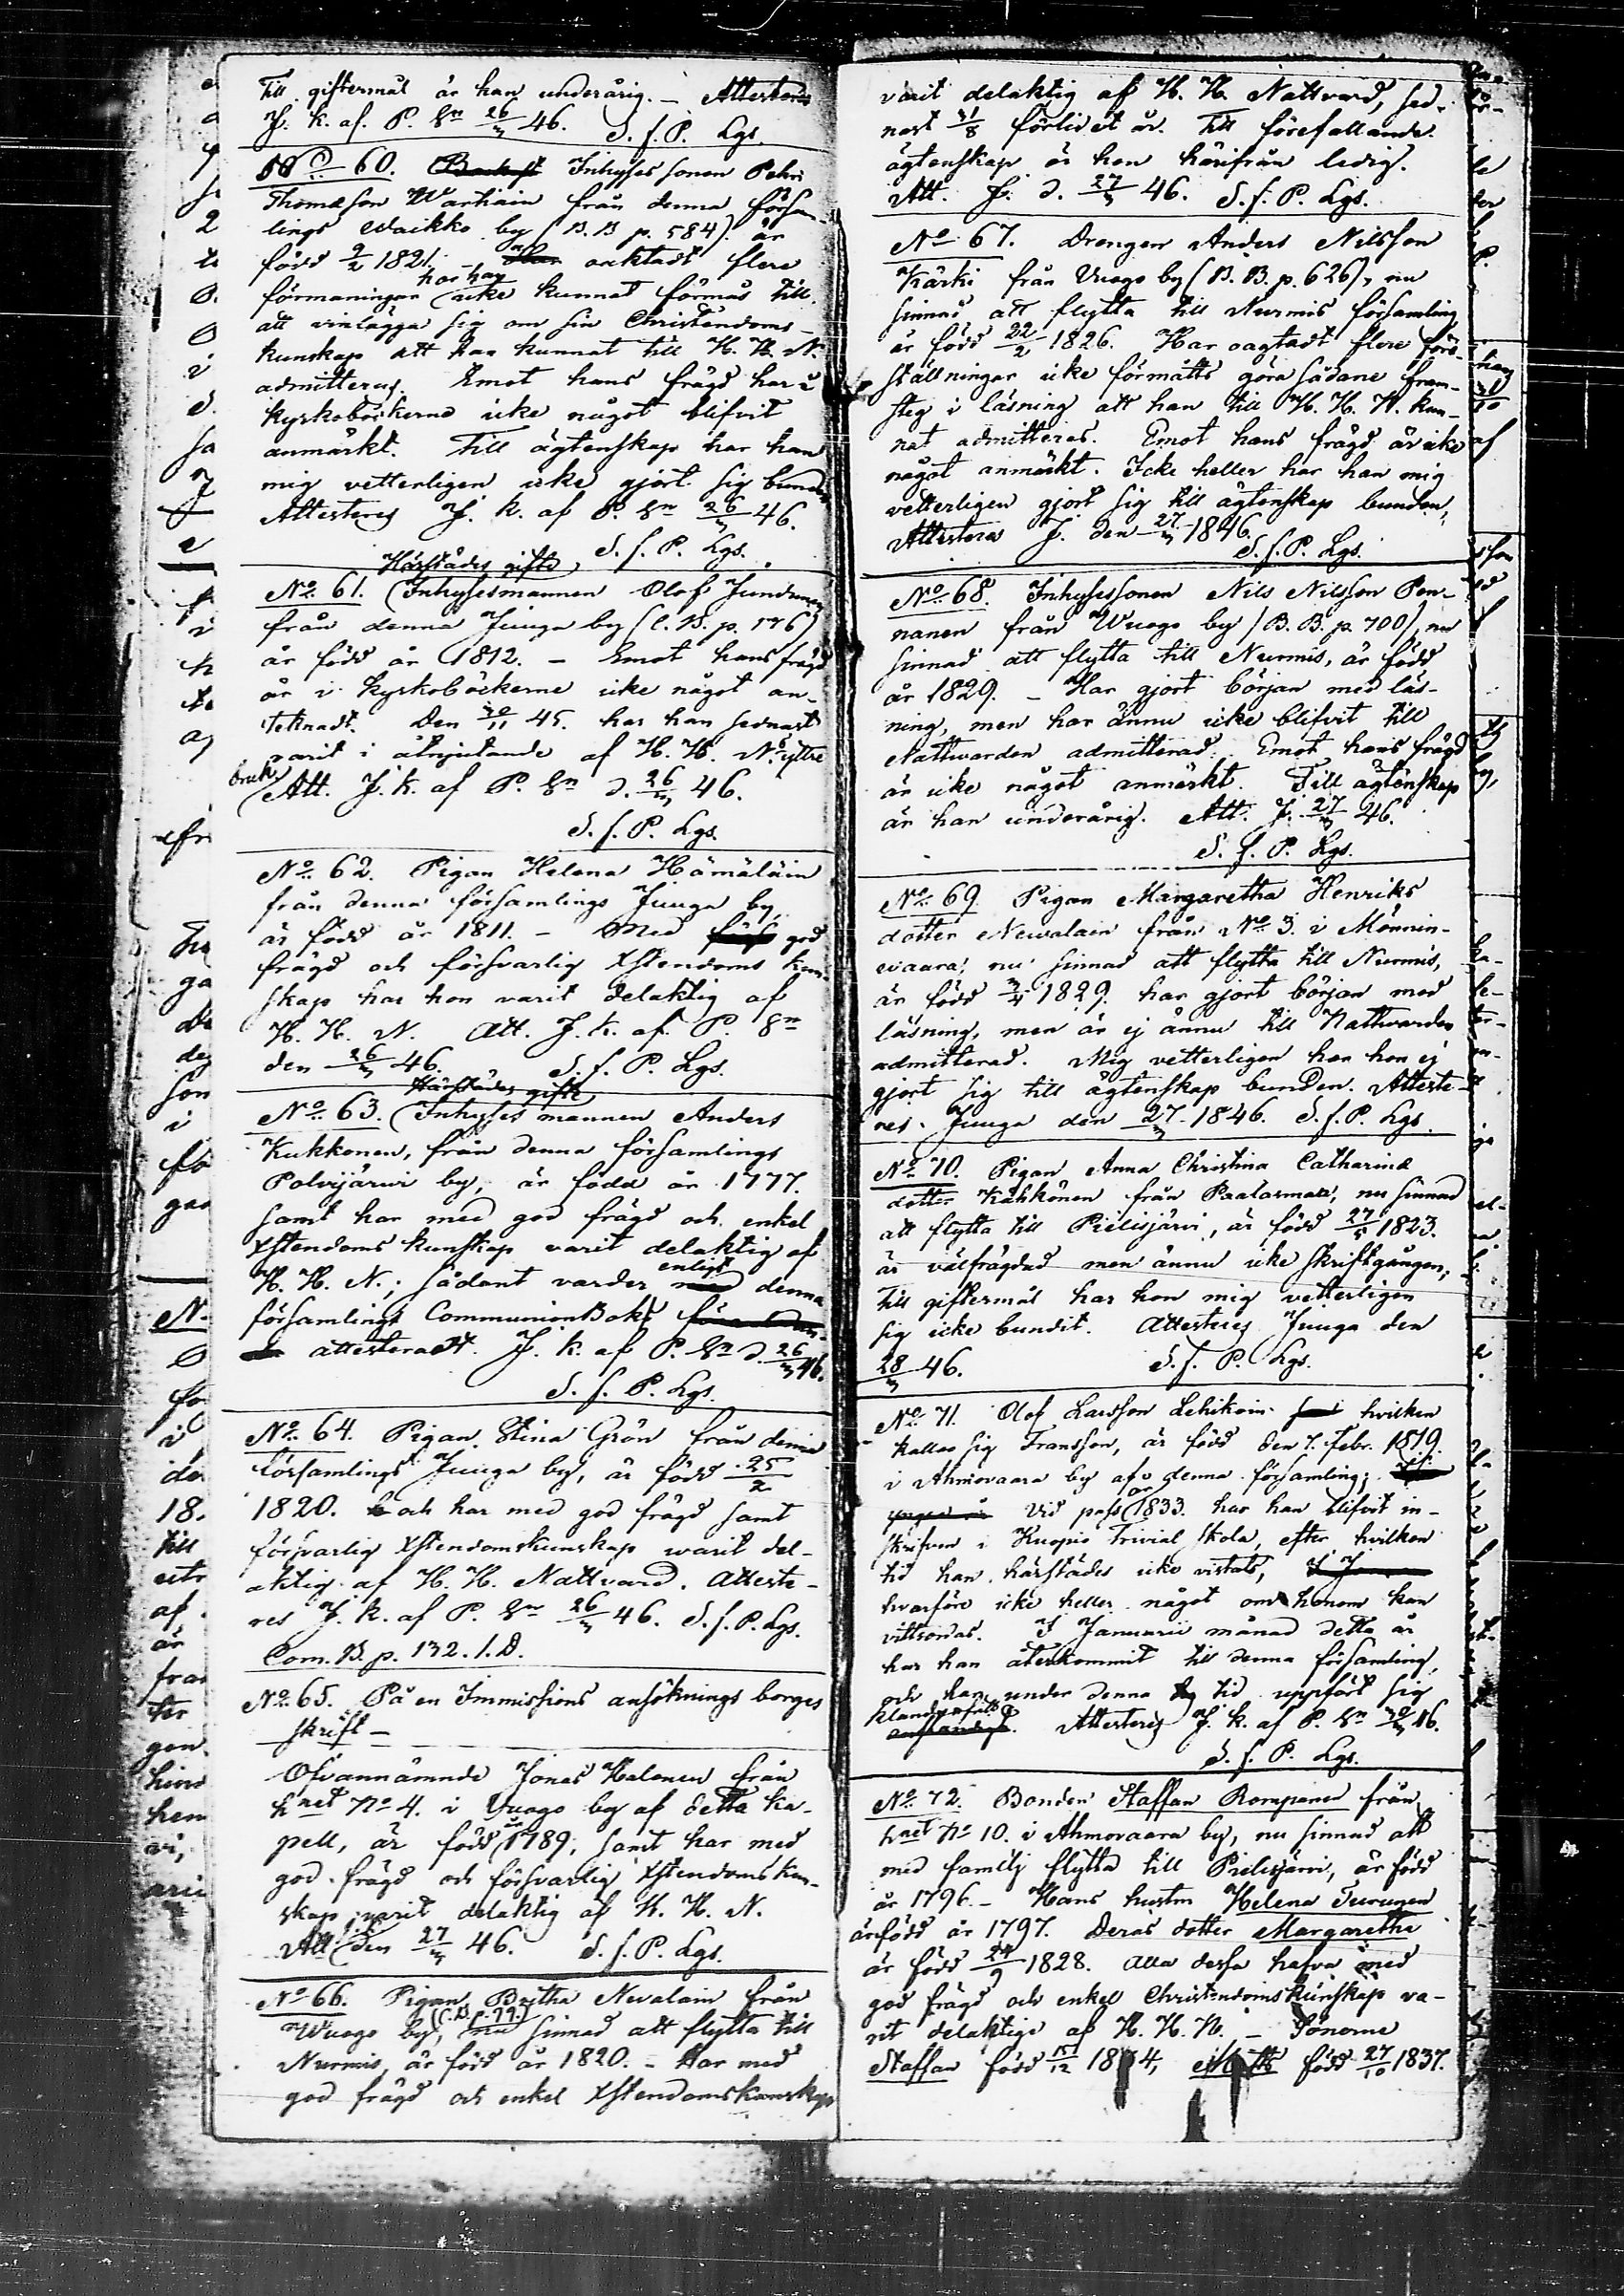 Till giftermål är han underårig. — Attesteras
J. k. af P. Sn 26/3 46. S. f. P. Lgs.
No 60. Inhyses sonen Pehr
Thomasson Wartiain från denna försam-
lings Waikko by (B.B p. 584). är
född 9/2 1821. — oaktadt flere
förmaningar har han icke kunnat förmås till
att vinlägga sig om sin Christendoms-
kunskap att han kunnat till H. H. N.
admitteras. Emot hans frägd har i
kyrkoböckerne icke något blifvit
anmärkt. Till ägtenskap har han
mig vetterligen icke gjort sig bunden
Attesteras J. k. af P. Sn 26/3 46.
S. f. P. Lgs.
No 61. Härstädes gifte Inhysesmannen Olof Junduna
från denna Juuga by (C.B. p. 176)
är född år 1812. — Emot hans frägd
är i kyrkoböckerne icke något an-
tecknadt. Den 30/11 45. har han sednast
varit i åtnjutande af H. H. N. yttre
bruk. Att. J. k. af P. Sn d. 26/3 46.
S. f. P. Lgs.
No 62. Pigan Helena Hämäläin
från denna församlings Juuga by,
är född år 1811. — Med god
frägd och försvarlig Xstendoms kun-
skap har hon varit delaktig af
H. H. N. Att. J. k. af P. Sn
den 26/3 46. S. f. P. Lgs.
No 63. Härstädes gifte Inhyses mannen Anders
Kukkonen, från denna församlings
Polvijärvi by, är född år 1777.
samt har med god frägd och enkel
Xstendoms kunskap varit delaktig af
H. H. N.; sådant varder enligt denna
församlings CommunionBok
attesteradt. J. k. af P. Sn d. 26/3 46.
S. f. P. Lgs.
No 64. Pigan Stina Grön från denna
församlings Juuga by, är född 25/2
1820. och har med god frägd samt
försvarlig Xstendomskunskap warit del-
aktig af H. H. Nattvard. Atteste-
res J. k. af P. Sn 26/3 46. S. f. P. Lgs.
Com. B. p. 132. 1. D.
No 65. På en Immissions ansöknings borges
skrift —
Ofvannämnde Jonas Halonen från
hnet No 4. i Vuogo by af detta ka-
pell, är född år 1789, samt har med
god frägd och försvarlig Xstendoms kun-
skap varit delaktig af H. H. N.
Att. den 27/3 46. S. f. P. Lgs.
No 66. Pigan Brytha Nevalain från
Wuogo by, (C.B. p. 79.) nu sinnad att flytta till
Nurmis, är född år 1820. — Har med
god frägd och enkel Xstendomskunskap
varit delaktig af H. H. Nattvard, sed-
nast 31/8 förlidet år. Till förefallande
ägtenskap är hon härifrån ledig.
Att. J. d. 27/3 46. S. f. P. Lgs.
No 67. Drengen Anders Nilsson
Kärki från Vuogo by (B. B. p. 626), nu
sinnad att flytta till Nurmis församling
är född 22/2 1826. Har oagtadt flere före-
ställningar icke förmåtts göra sådane fram-
steg i läsning att han till H. H. N. kun-
nat admitteras. Emot hans frägd är icke
något anmärkt. Icke heller har han mig
vetterligen gjort sig till ägtenskap bunden,
Attesteras J. den 27/3 1846.
S. f. P. Lgs.
No 68. Inhysessonen Nils Nilsson Pen-
nanen från Wuogo by (B. B. p. 700), nu
sinnad att flytta till Nurmis, är född
år 1829. — Har gjort början med läs-
ning, men har ännu icke blifvit till
Nattwarden admitterad. Emot hans frägd
är icke något anmärkt. Till ägtenskap
är han underårig. Att. J. 27/3 46.
S. f. P. Lgs.
No 69. Pigan Margaretha Henriks
dotter Newalain från No 3. i Mönnin-
waara, nu sinnad att flytta till Nurmis,
är född 3/4 1829. har gjort början med
läsning, men är ej ännu till Nattvarden
admitterad. Mig vetterligen har hon ej
gjort sig till ägtenskap bunden. Atteste-
res. Juuga den 27/3 1846. S. f. P. Lgs.
No 70. Pigan Anna Christina Catharina
dotter Kähkönen från Paalasmaa, nu sinnad
att flytta till Pielisjärvi, är född 27/5 1823.
är välfrägdad men ännu icke skriftgången,
till giftermål har hon mig vetterligen
sig icke bundit. Attesteras Juuga den
28/3 46. S. f. P. Lgs.
No 71. Olof Larsson Lehikoin hvilken
kallar sig Fransson, är född den 7. Febr. 1819.
i Ahmovaara by af denna församling;
Vid pass år 1833. har han blifvit in-
skrifven i Kuopio Trivial skola, efter hvilken
tid han härstädes icke vistats,
hvarföre icke heller något om honom kan
vittsordas. I Januarii månad detta år
har han återkommit till denna församling,
och har under denna tid uppfört sig
klanderfritt. Attesteras J. k. af P. Sn 30/3 46.
S. f. P. Lgs.
No 72. Bonden Staffan Romponen från
hnet No 10. i Ahmovaara by, nu sinnad att
med familj flytta till Pielisjärvi, är född
år 1796. — Hans hustru Helena Turunen
är född år 1797. Deras dotter Margaretha
är född 24/9 1828. Alla dessa hafva med
god frägd och enkel Christendomskunskap va-
rit delaktige af H. H. N. — Sönerne
Staffan född 12 18 4, född 27/10 1837.